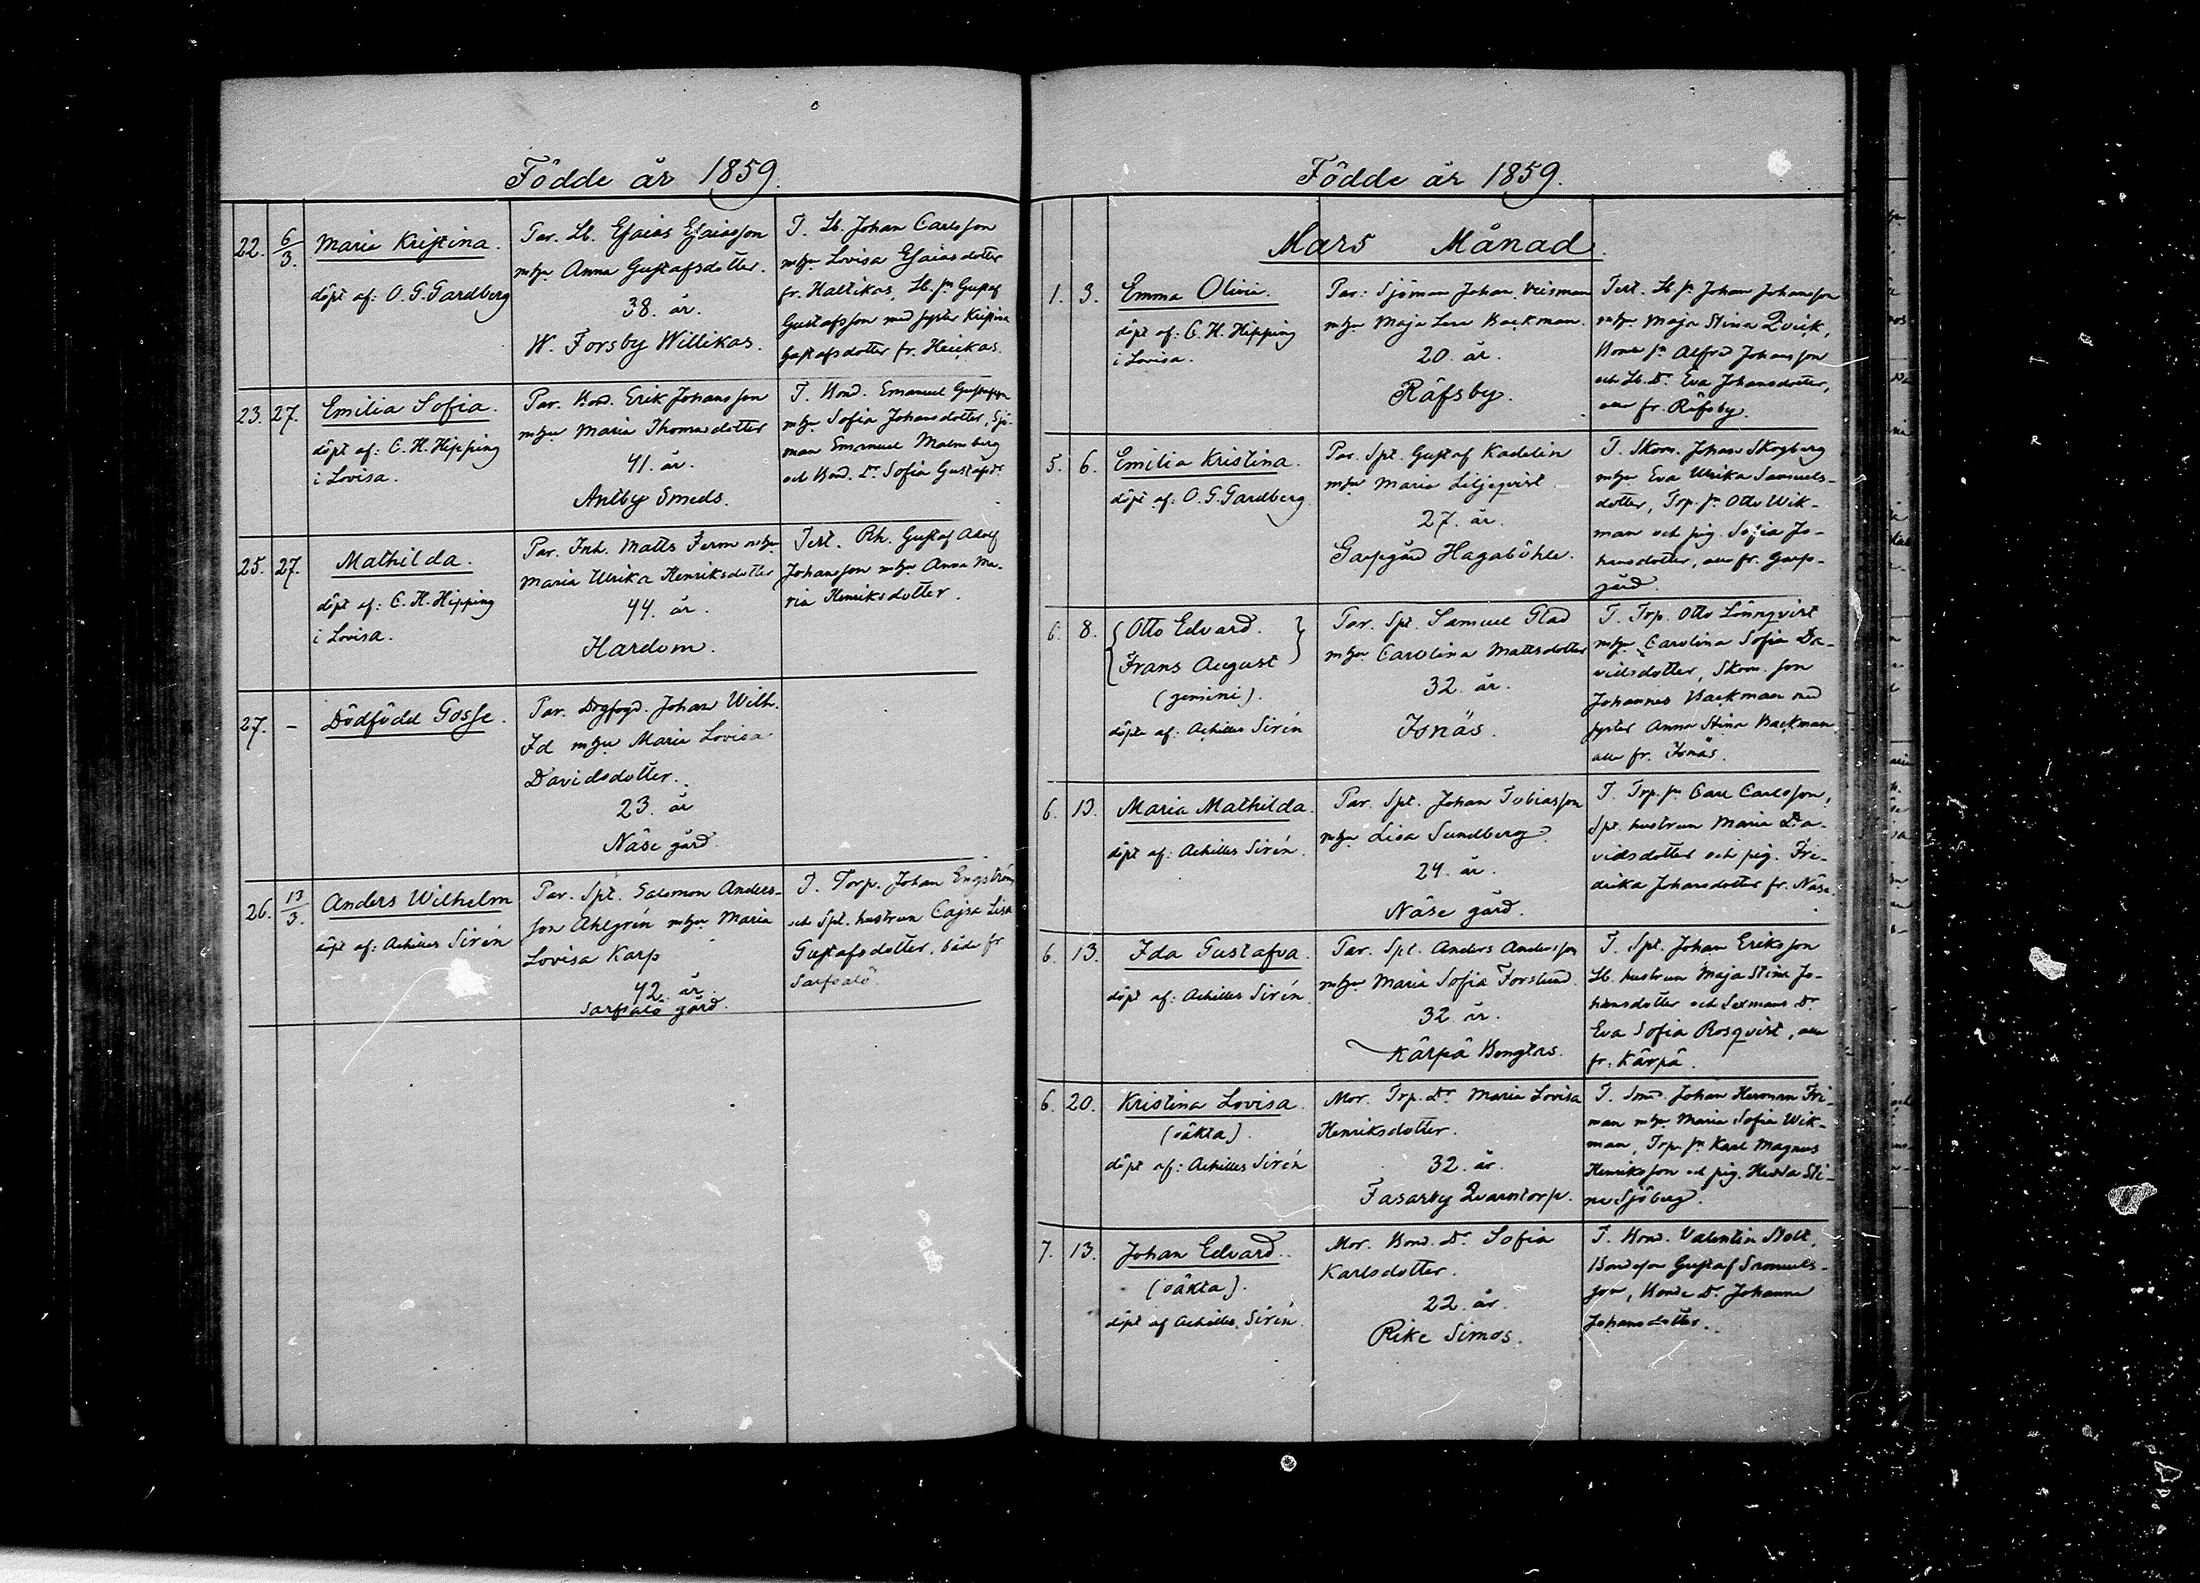 Födde år 1859.
22. 6/3. Maria Kristina.
döpt af: O. G. Gardberg
Par. Lb. Esaias Esaiasson
mhu Anna Gustafsdotter.
38. år.
W. Forsby Willikas.
T. Lb. Johan Carlsson
mhu Lovisa Esaiasdotter
fr. Haltikas, Lb. sn Gustaf
Gustafsson med syster Kristina
Gustafsdotter fr. Heickas.
23. 27. Emilia Sofia.
döpt af: C. H. Hipping
i Lovisa.
Par. Bond. Erik Johansson
mhu Maria Thomasdotter
41. år.
Antby Smeds.
T. Bond. Emanuel Gustafsson
mhu Sofia Johansdotter, Sjö-
man Emanuel Malmberg
och Bond. Dr Sofia Gustafsdr
25. 27. Mathilda.
döpt af: C. H. Hipping
i Lovisa.
Par. Inh. Matts Ferm mhu
Maria Ulrika Henriksdotter
44. år.
Hardom.
Test. Rh. Gustaf Adolf
Johansson mhu Anna Ma-
ria Henriksdotter.
27. - Dödfödd Gosse.
Par. Johan Wilh.
Id mhu Maria Lovisa
Davidsdotter.
23. år
Näse gård.
26. 13/3. Anders Wilhelm
döpt af: Achilles Sirén
Par. Spt. Salomon Anders-
son Ahlgrén mhu Maria
Lovisa Karp
42. år.
Sarfsalö gård.
T. Torp. Johan Engström
och Spt. hustrun Cajsa Lisa
Gustafsdotter, både fr.
Sarfsalö.
Födde år 1859.
Mars Månad.
1. 3. Emma Olivia.
döpt af: C. H. Hipping
i Lovisa.
Par: Sjöman Johan
mhu Maja Lena Backman.
20. år.
Räfsby.
Test. Lb sn Johan Johansson
mhu Maja Stina Qvick,
Bonde sn Alfred Johansson
och Lb. Dr. Eva Johansdotter,
alla fr. Räfsby.
5. 6. Emilia Kristina.
döpt af: O. G. Gardberg.
Par. Spt. Gustaf Kadelin
mhu Maria Liljeqvist
27. år.
Garpgård Hagaböhle.
T. Skom. Johan Skogberg
mhu Eva Ulrika Samuels-
dotter, Torp. sn Otto Wik-
man och pig. Sofia Jo-
hansdotter, alla fr. Garp-
gård.
6. 8. Otto Edvard.
Frans August
(gemini).
döpte af: Achilles Sirén
Par. Spt. Samuel Glad
mhu Carolina Mattsdotter
32. år.
Isnäs.
T. Trp. Otto Lönnqvist
mhu Carolina Sofia Da-
vidsdotter, Skom. son
Johannes Backman med
syster Anna Stina Backman
alla fr. Isnäs.
6. 13. Maria Mathilda.
döpt af: Achilles Sirén.
Par. Spt. Johan Tobiasson
mhu Lisa Sundberg.
24. år.
Näse gård.
T. Trp. sn Carl Carlsson,
Spt. hustrun Maria Da-
vidsdotter och pig. Fre-
drika Johansdotter fr. Näse.
6. 13. Ida Gustafva.
döpt af: Achilles Sirén.
Par. Spt. Anders Andersson
mhu Maria Sofia Forslund.
32. år.
Kärpä Bengtas.
T. Spt. Johan Eriksson
Lb. hustrun Maja Stina Jo-
hansdotter och Sexmans Dr.
Eva Sofia Rosqvist, alla
fr. Kärpä.
6. 20. Kristina Lovisa.
(oäkta).
döpt af: Achilles Sirén
Mor. Trp. Dr. Maria Lovisa
Henriksdotter.
32. år.
Fasarby Qvarntorp.
T. Smed Johan Herman Fri-
man mhu Maria Sofia Wik-
man, Trp. sn Karl Magnus
Henriksson och pig. Hedda Sti-
na Sjöberg.
7. 13. Johan Edvard.
(oäkta).
döpt af Achilles Sirén.
Mor. Bond. Dr. Sofia
Karlsdotter.
22. år.
Rike Simos.
T. Bond. Valentin
Bondeson Gustaf Samuels-
son, Bonde Dr. Johanna
Johansdotter.